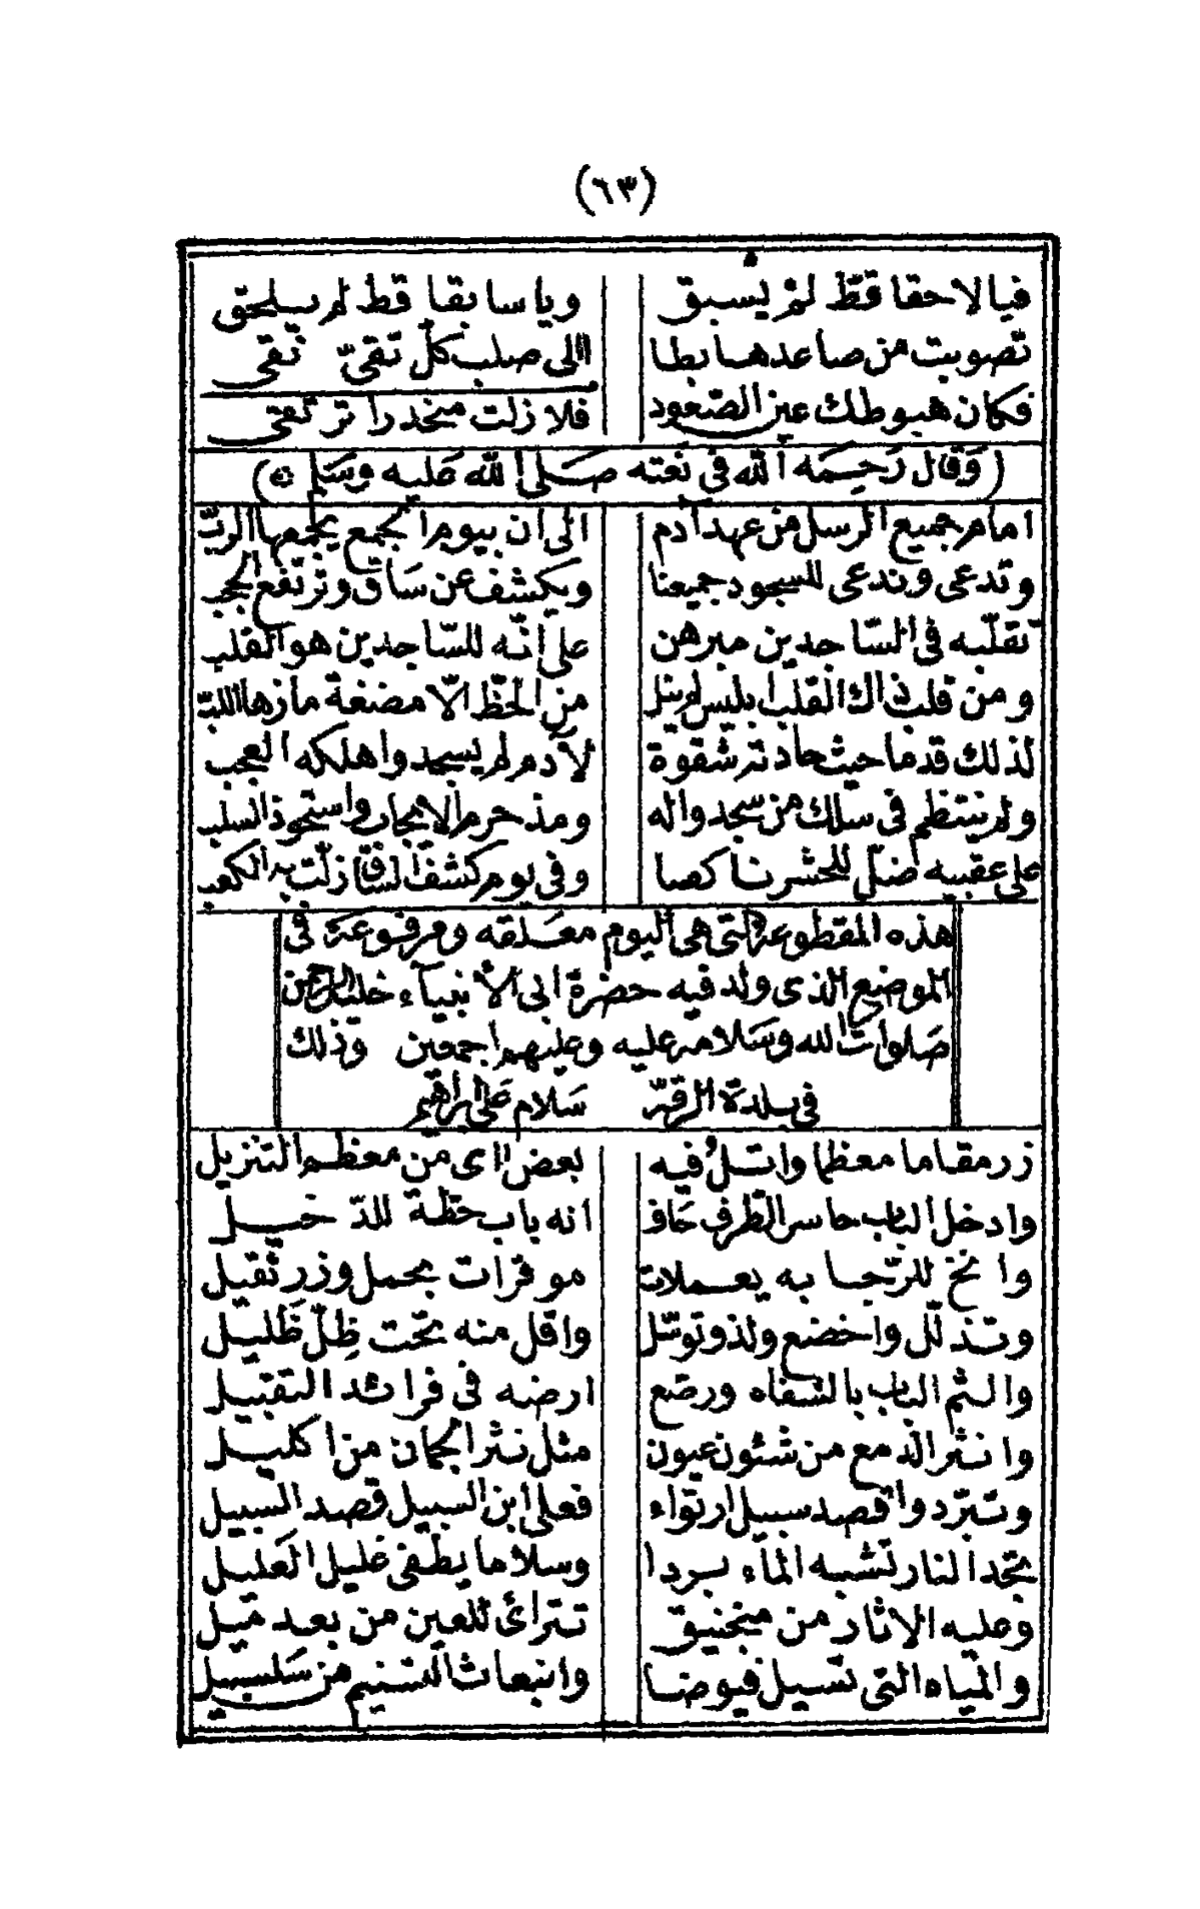 (٦٣)
فيا لاحقا قطّ لم يسبق ويا سابقا قط لم يلحق
تصوبت من صاعد هابطا الى صلب كلّ تقىّ نقى
فكان هبوطك عين الصّعود فلا زلت منحدرا ترتقى
(وَقال رَحِمَه الله فى نعته صَلى الله عَليه وسَلم)
امام جميع الرسل من عهد ادم الى ان بيوم الجمع يجمعها الربّ
وتدعى وندعى للسجود جميعنا ويكشف عن سَاق وترتفع الحجب
تقلّبه فى السّاجدين مبرهن على انّه للسّاجدين هو القلب
ومن قلب ذاك القلب ابليس لم ينل من الحظّ الّا مضغة مازها اللبّ
لذلك قدما حيث حادته شقوة لآدم لم يسجد واهلكه العجب
ولم ينتظم فى سلك من سجدوا له ومذ حرم الايجاب واستحوذ السلب
على عقبيه ضلّ للحشر ناكصا وفى يوم كشف السّاق زلّت به الكعب
هذه المقطوعة التى هى اليوم معَلقه ومرفوعَة فى
الموضع الذى ولد فيه حضرة ابى الأنبيآء خليل الرحمن
صَلوات الله وسَلامه عليه وعليهم اجمعين وذلك
فى بلدة الرقّه سَلام عَلى ابراهيم
زر مقاما معظما واتلُ فيه بعض اى من معظم التنزيل
وادخل الباب حاسر الطرف حَاف انه باب حطة للدّخيل
وانخ للرّجا به يعملات موقرات بحمل وزر ثقيل
وتذلّل واخضع ولذ وتوسّل واقل منه تحت ظِلّ ظَليل
والثم الباب بالشفاه ورصّع ارضه فى فرائد التقبيل
وانثر الدمع من شئون عيون مثل نثر الجمان من اكليل
وتبرّد واقصد سبيل ارتواء فعلى ابن السبيل قصد السبيل
تجد النار تشبه الماء بردا وسلاما يطفى غليل العَليل
وعليه الاثار من منجنيق تترائ للعين من بعد ميل
والمياه التى تسيل فيوضا وانبعاث التسنيم من سَلسبيل